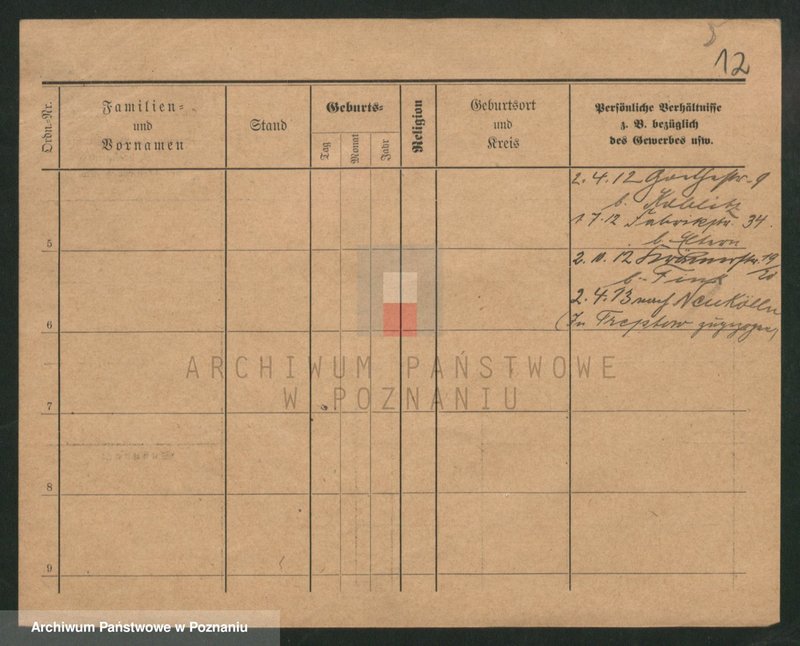 12
Ordn.-Nr.
Familien-
und
Vornamen
Stand
Geburts-
Tag
Monat
Jahr
Religion
Geburtsort
und
Kreis
Persönliche Verhältnisse
z. B. bezüglich
des Gewerbes usw.
2. 4. 12 Goethestr. 9
b.
1. 7. 12 Fabrikstr. 34.
b. Eltern
5
2. 10. 12 19/20
b. Fink
2. 4. 13 nach Neukölln
6
(In Treptow zugezogen)
ARCHIWUM PAŃSTWOWE
W POZNANIU
7
8
9
Archiwum Państwowe w Poznaniu